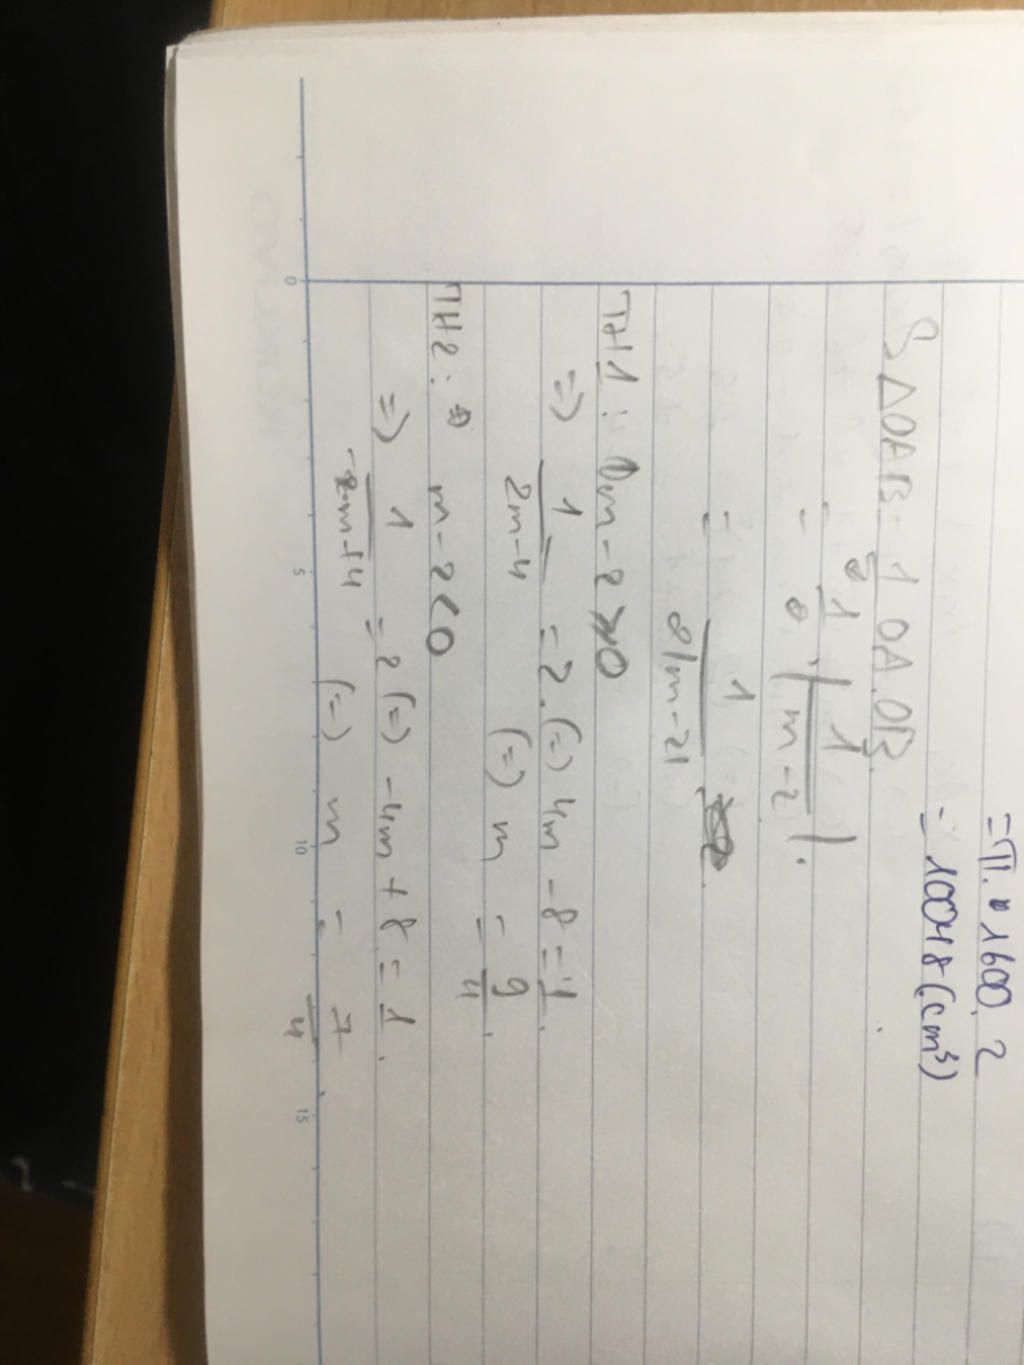 = π. 1600. 2
= 10048 (cm³)
S ΔOAB = 1/2 OA.OB
= 1/2 . |1/(m-2)|.
= 1/(2|m-2|)
TH1: m-2>0
=> 1/(2m-4) = 2 (=) 4m - 8 = 1.
(=) m = 9/4.
TH2: m-2<0
=> 1/(-2m+4) = 2 (=) -4m + 8 = 1.
(=) m = 7/4
0 5 10 15